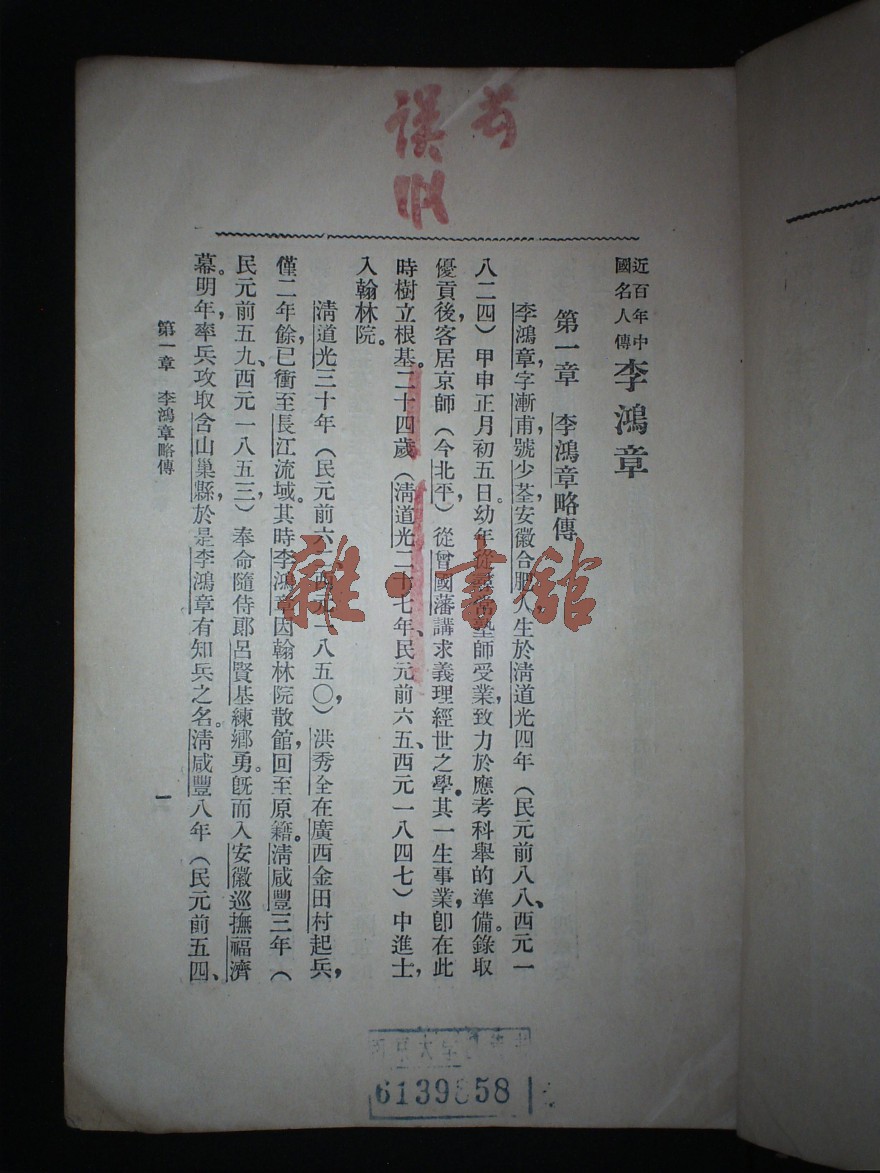 近百年中
國名人傳
李鴻章
第一章 李鴻章略傳
李鴻章，字漸甫，號少荃，安徽合肥人，生於清道光四年（民元前八八、西元一
八二四）甲申正月初五日。幼年從 塾師受業，致力於應考科舉的準備。錄取
優貢後，客居京師（今北平），從曾國藩講求義理經世之學。其一生事業，卽在此
時樹立根基。二十四歲（清道光二十七年、民元前六五、西元一八四七）中進士，
入翰林院。
清道光三十年（民元前六 、西元一八五〇），洪秀全在廣西金田村起兵，
僅二年餘，已衝至長江流域。其時李鴻章因翰林院散館，回至原籍。清咸豐三年（
民元前五九、西元一八五三），奉命隨侍郞呂賢基練鄉勇。旣而入安徽巡撫福濟
幕。明年，率兵攻取含山巢縣，於是李鴻章有知兵之名。清咸豐八年（民元前五四、
第一章 李鴻章略傳
一
雜·書館
6139 58